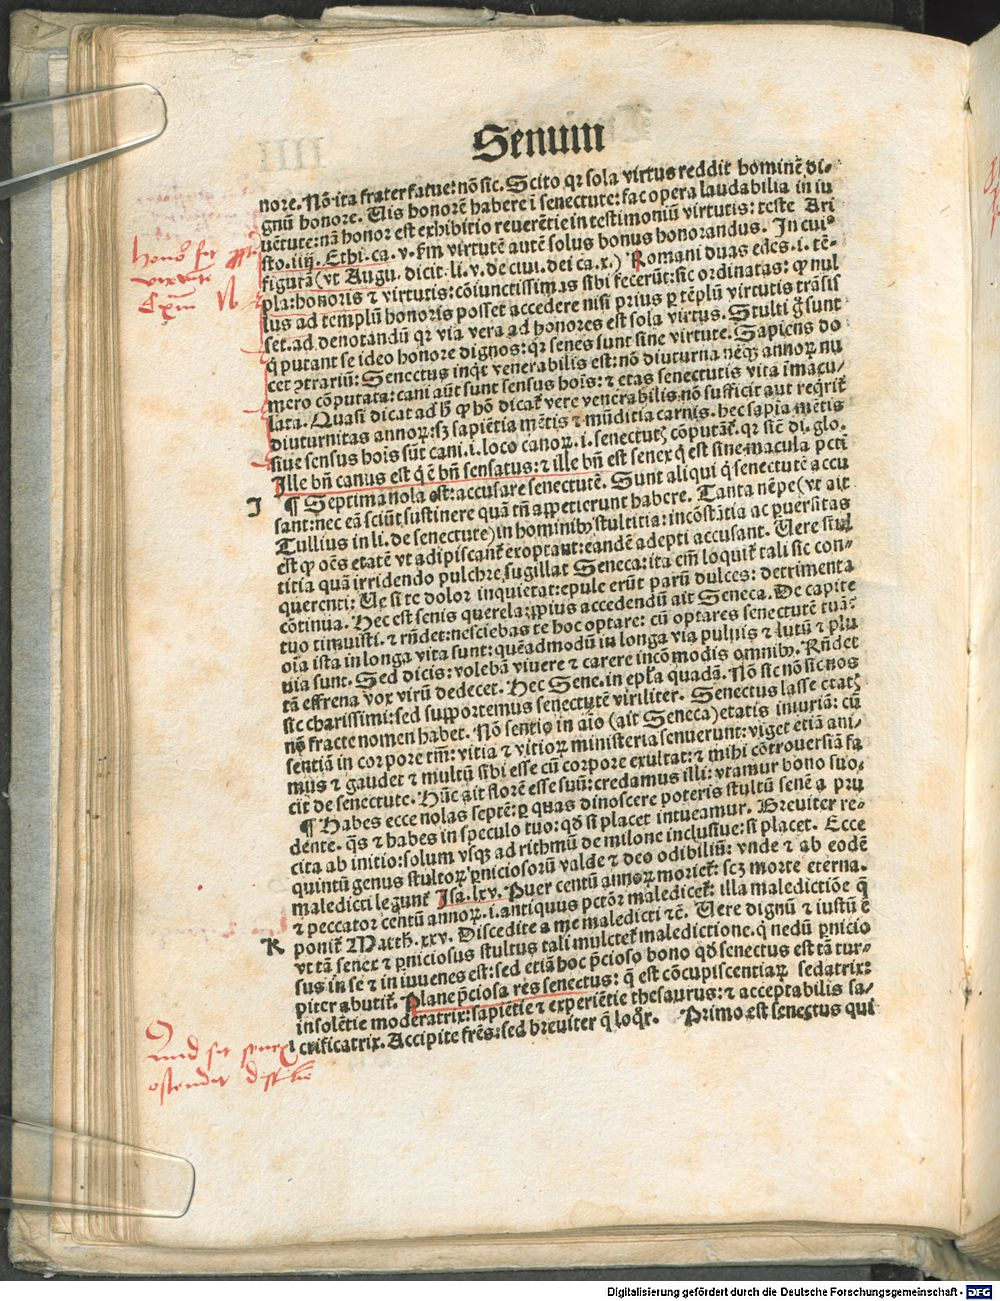 Senum
nore. Nō ita frater fatue: nō sic. Scito qꝛ sola virtus reddit hominē di-
gnū honore. Vis honorē habere ī senectute: fac opera laudabilia in iu
uētute: nā honor est exhibitio reuerētie in testimoniū virtutis: teste Ari
sto. iiij. Ethi. ca. v. ẜm virtutē autē solus bonus honorandus. In cui⸗
figurā (vt Augu. dicit li. v. de ciui. dei ca. x.) Romani duas edes .i. tē-
pla: honoris ⁊ virtutis: cōiunctissimas sibi fecerūt: sic ordinatas: ꝙ nul
lus ad templū honoris posset accedere nisi prius ꝑ tēplū virtutis trāsis
set. ad denotandū qꝛ via vera ad honores est sola virtus. Stulti g̊ sunt
q̇ putant se ideo honore dignos: qꝛ senes sunt sine virtute. Sapiens do
cet ꝯtrariū: Senectus inq̇t venerabilis est: nō diuturna neqꝫ annoꝝ nu
mero cōputata: cani aūt sunt sensus hoīs: ⁊ etas senectutis vita īmacu-
lata. Quasi dicat ad h̄ ꝙ hō dicat̄ vere venerabilis nō sufficit aut reqrit̄
diuturnitas annoꝝ: sꝫ sapiētia mētis ⁊ mūditia carnis. hec sapia mētis
siue sensus hoīs sūt cani .i. loco canoꝝ .i. senectutꝭ cōputāt̄. qꝛ sicē di. glo.
Ille bn̄ canus est q̇ ē bn̄ sensatus: ⁊ ille bn̄ est senex q̇ est sine macula pctī
I ¶ Septima nola est: accusare senectutē. Sunt aliqui q̇ senectutē accu
sant: nec eā sciūt sustinere quā tn̄ appetierunt habere. Tanta nēpe (vt ait
Tullius in li. de senectute) in hominibꝰ stultitia: incōstātia ac ꝑuersitas
est ꝙ oēs etatē vt adipiscant̄ exoptant: eandē adepti accusant. Vere stul
titia quā irridendo pulchre sugillat Seneca: ita em̄ loquit̄ tali sic con-
querenti: Ve si te dolor inquietat: epule erūt parū dulces: detrimenta
cōtinua. Hec est senis querela: ꝓpius accedendū ait Seneca. De capite
tuo timuisti. ⁊ rn̄det: nesciebas te hoc optare: cū optares senectutē tuā⸗
oīa ista in longa vita sunt: quēadmodū in longa via puluis ⁊ lutū ⁊ plu
uia sunt. Sed dicis: volebā viuere ⁊ carere incōmodis omnibꝰ. Rn̄det
tā effrena vox virū dedecet. Hec Sene. in epl̄a quadā. Nō sic nō sic nos
sic charissimi: sed supportemus senectutē viriliter. Senectus lasse etatꝭ
nō fracte nomen habet. Nō sentio in aīo (ait Seneca) etatis iniuriā: cū
sentiā in corpore tm̄: vitia ⁊ vitioꝝ ministeria senuerunt: viget etiā ani-
mus ⁊ gaudet ⁊ multū sibi esse cū corpore exultat: ⁊ mihi cōtrouersiā fa
cit de senectute. Hūc ait florē esse suū: credamus illi: vtamur bono suo.
¶ Habes ecce nolas septē: ꝑ quas dinoscere poteris stultū senē a pru
dente. q̄s ⁊ habes in speculo tuo: qd̄ si placet intueamur. Breuiter re-
cita ab initio: solum vsqꝫ ad rithmū de milone inclusiue: si placet. Ecce
quintū genus stultoꝝ ꝑniciosorū valde ⁊ deo odibiliū: vnde ⁊ ab eodē
maledicti legunt̄ Isa. lxv. Puer centū annoꝝ moriet̄: scꝫ morte eterna.
⁊ peccator centū annoꝝ .i. antiquus pctōr maledicet̄: illa maledictiōe q̄
K ponit̄ Matth. xxv. Discedite a me maledicti ⁊c̄. Vere dignū ⁊ iustū ē
vt tā senex ⁊ ꝑniciosus stultus tali mulctet̄ maledictione. q̇ nedū ꝑnicio
sus in se ⁊ in iuuenes est: sed etiā hoc p̄cioso bono qd̄ senectus est tā tur-
piter abutit̄. Plane p̄ciosa res senectus: q̄ est cōcupiscentiaꝝ sedatrix:
insolētie moderatrix: sapiētie ⁊ experiētie thesaurus: ⁊ acceptabilis sa-
crificatrix. Accipite frēs: sed breuiter q̄ loqr. Primo est senectus qui
Quid sit senex
ostendit
Digitalisierung gefördert durch die Deutsche Forschungsgemeinschaft - DFG